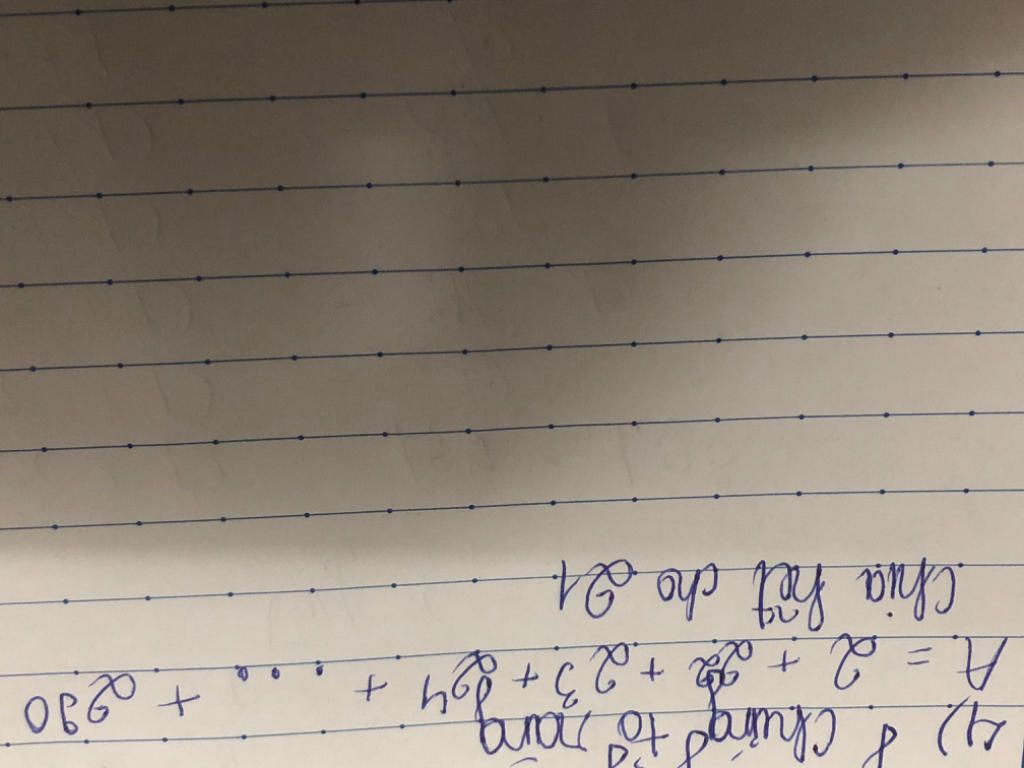 4) Chứng tỏ rằng
A = 2 + 2² + 2³ + 2⁴ + .... + 2⁹⁰
chia hết cho 21